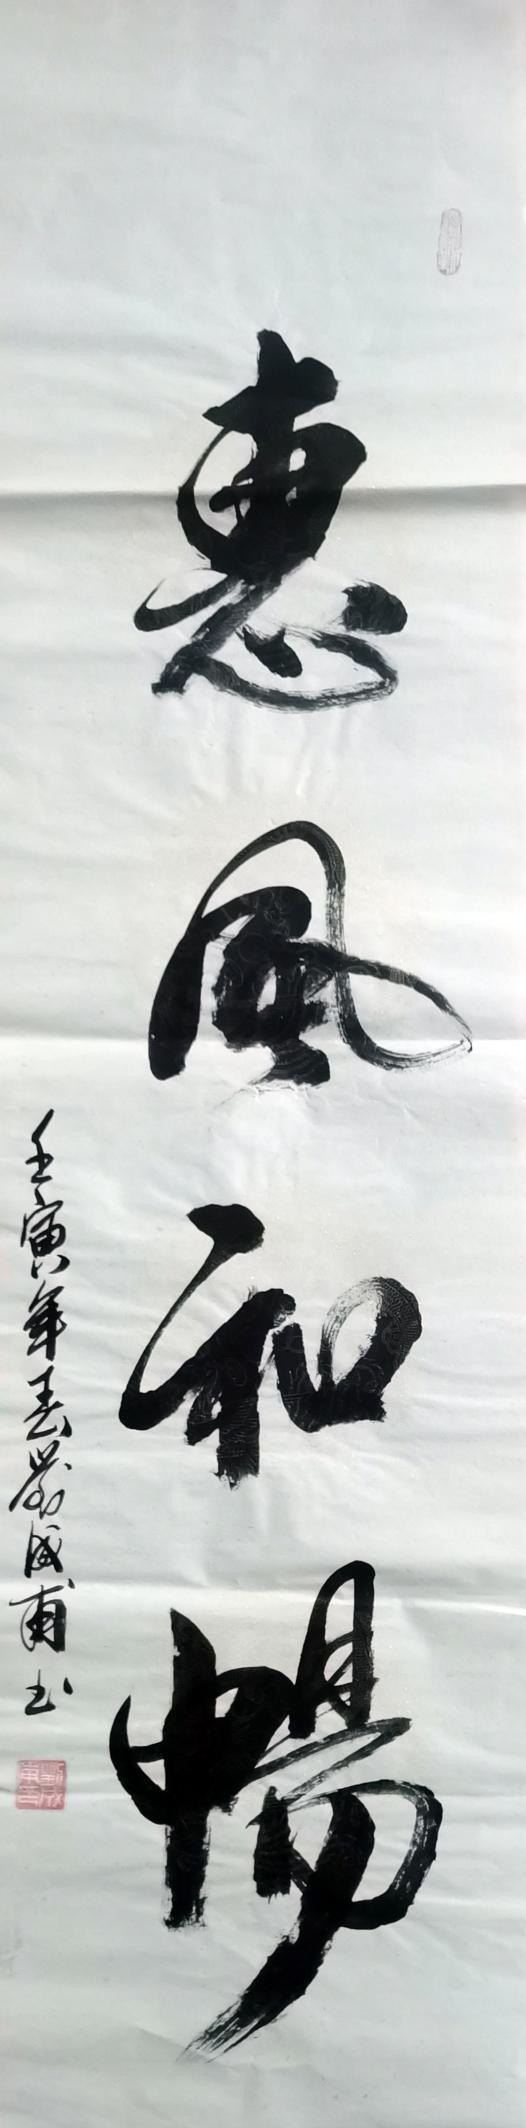 惠風和暢
壬寅年春劉成甫书